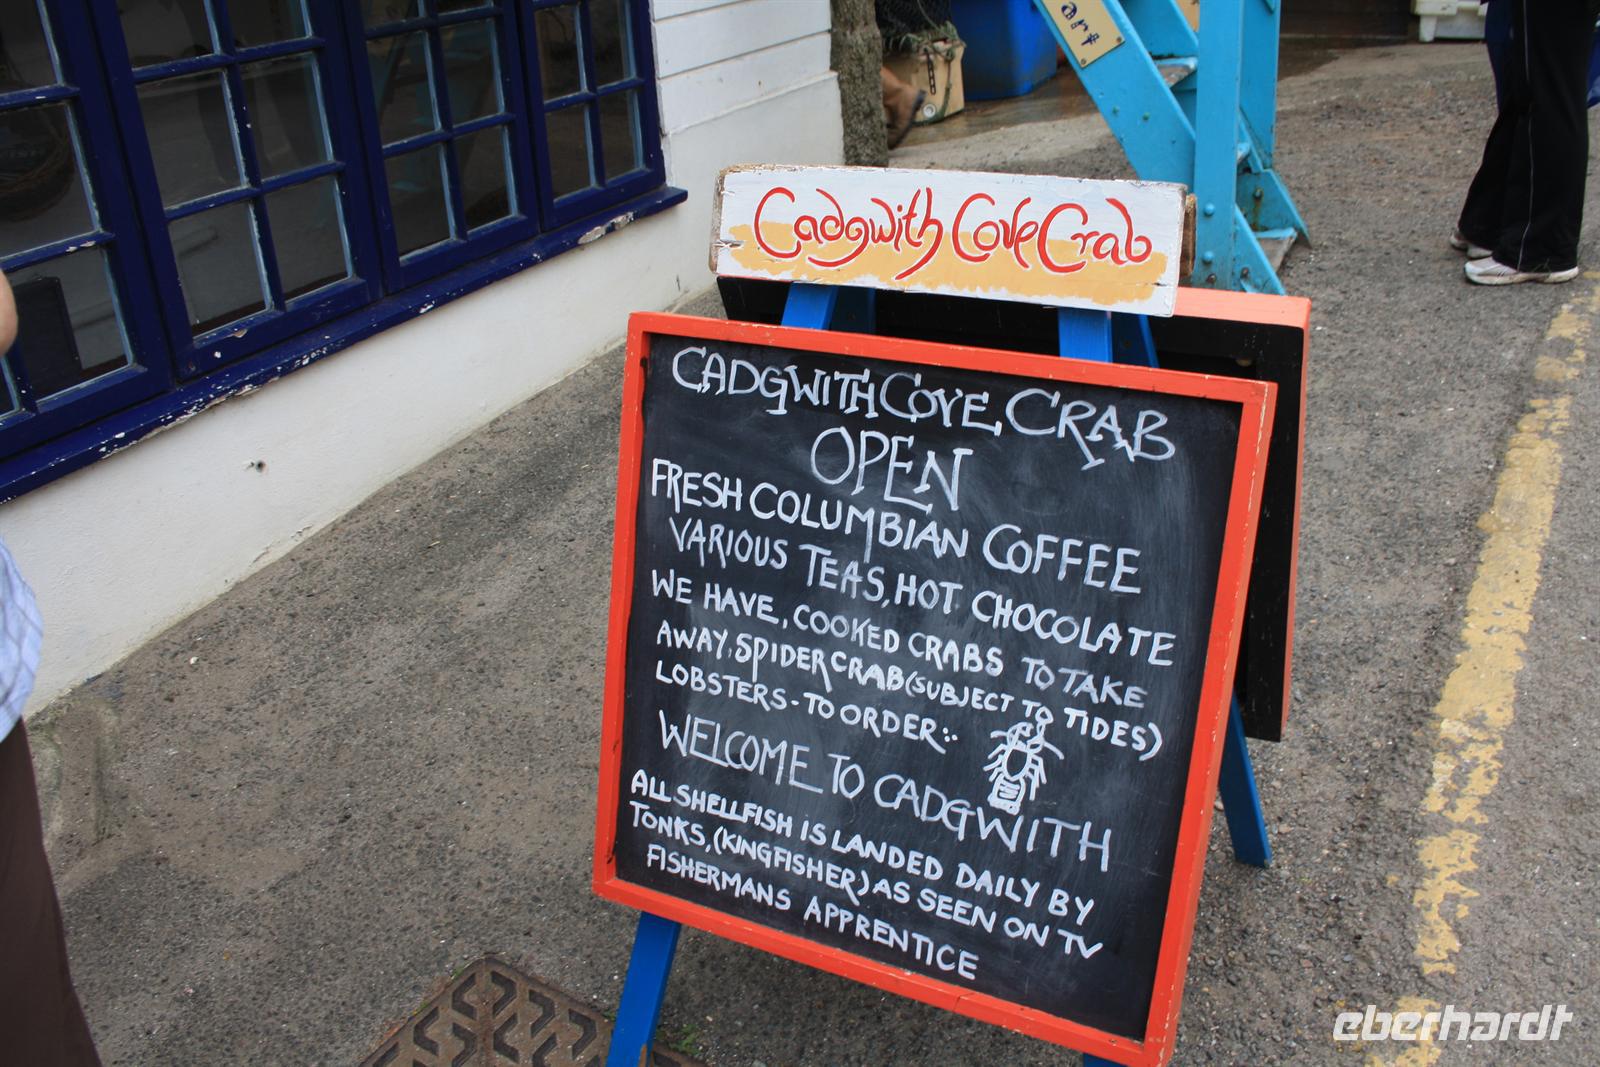 art
Cadgwith Cove Crab
CADGWITH COVE CRAB
OPEN
FRESH COLUMBIAN COFFEE
VARIOUS TEAS, HOT CHOCOLATE
WE HAVE, COOKED CRABS TO TAKE
AWAY, SPIDER CRAB (SUBJECT TO TIDES)
LOBSTERS - TO ORDER:-
WELCOME TO CADGWITH
ALL SHELLFISH IS LANDED DAILY BY
TONKS, (KINGFISHER) AS SEEN ON TV
FISHERMANS APPRENTICE
eberhardt